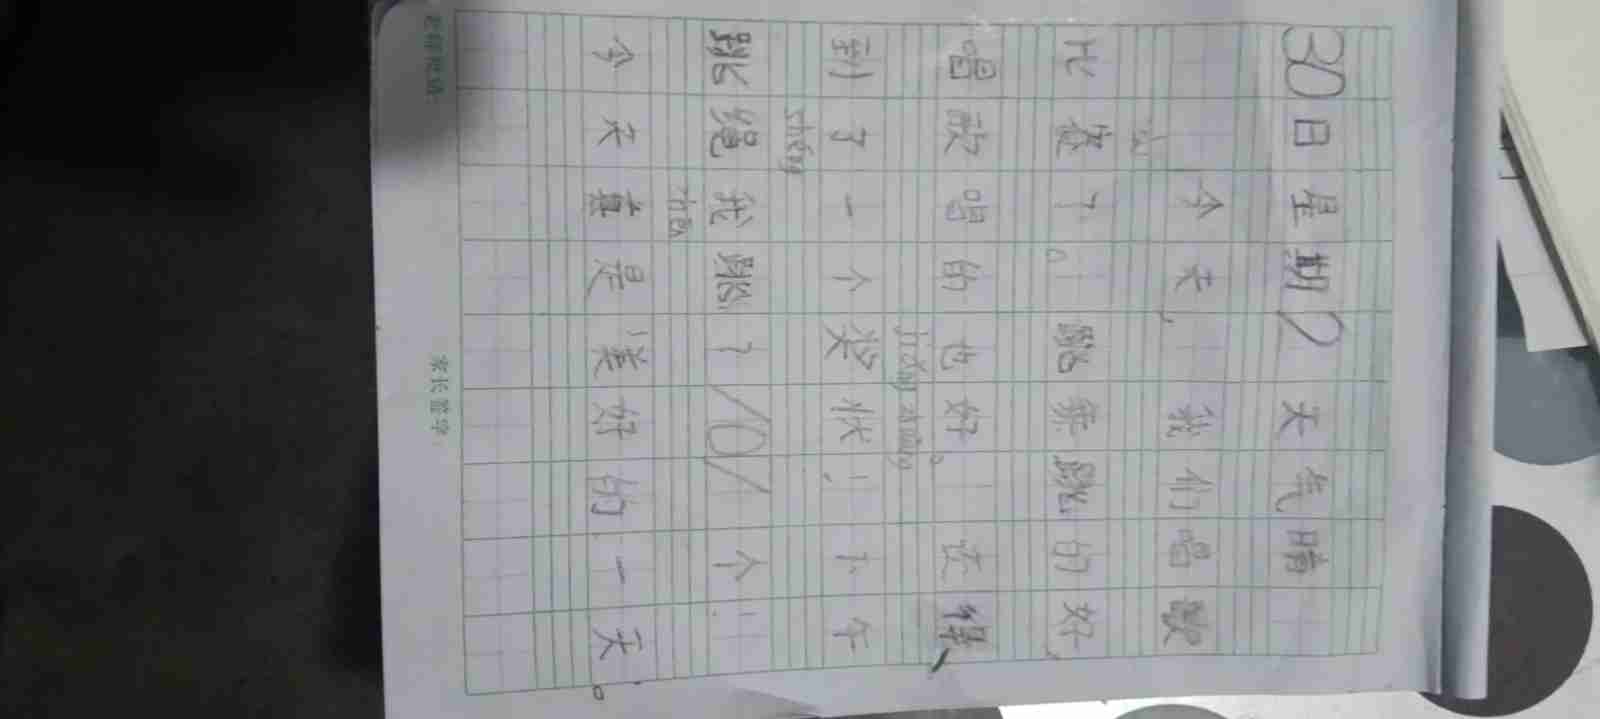 30日星期2天气晴
今天,我们唱歌
比赛了。跳舞跳的好,
唱歌唱的也好。还得
jiǎng zhuàng
到了一个奖状!下午
shéng
跳绳我跳了101个!
zhēn
今天真是美好的一天。
家长签字: